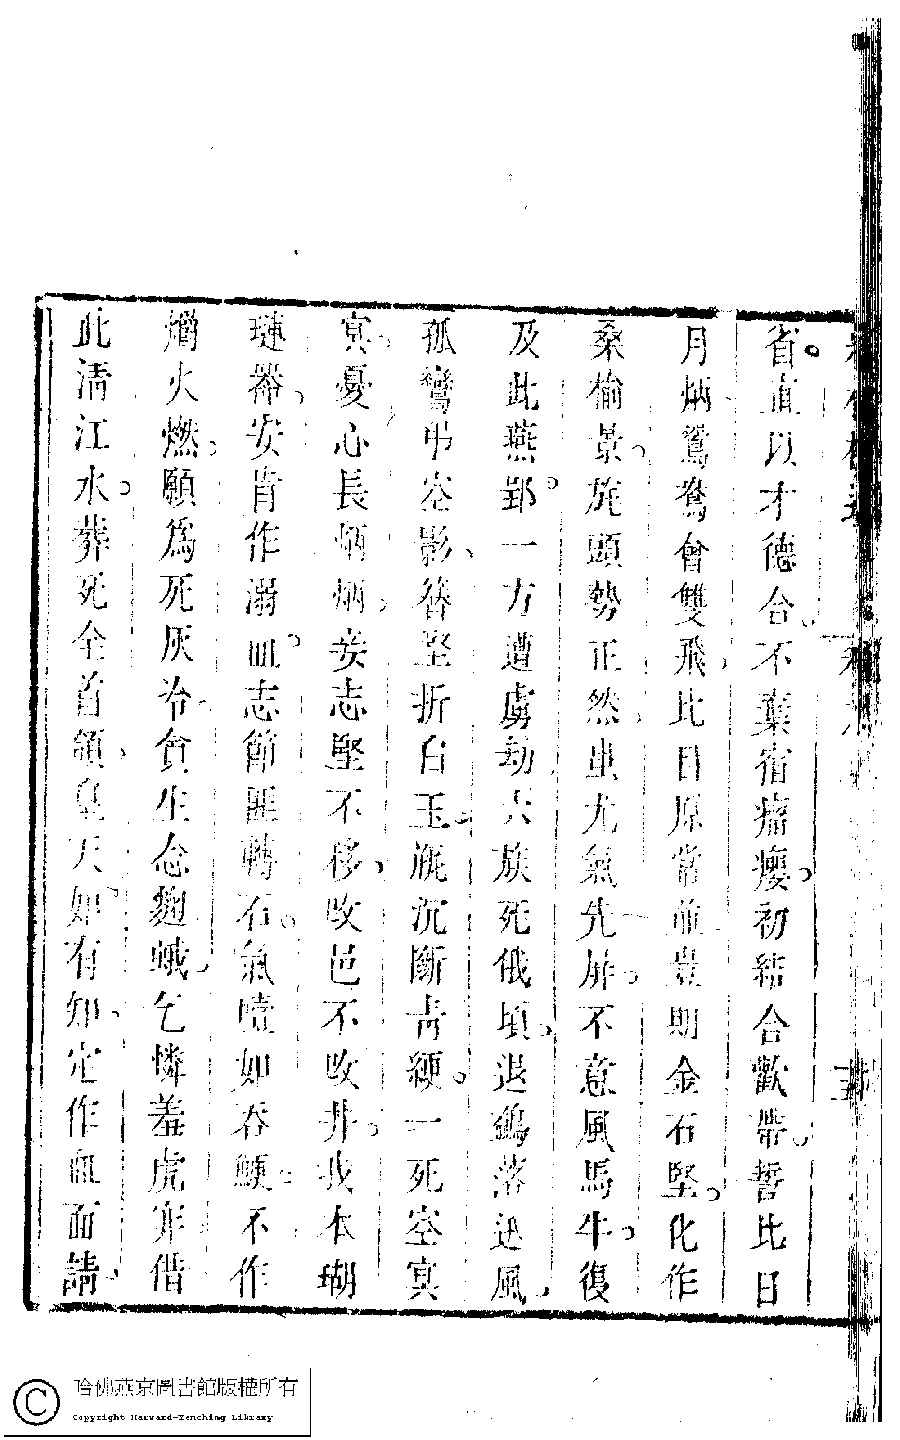 省直以才德合不棄宿瘤癭初結合歡帶誓比日
月炳鴛鴦會雙飛比目原常並豈期金石堅化作
桑榆景旄頭勢正然蚩尤氣先屏不意風馬牛復
及此燕郢一方遭虜劫六族死俄頃退鷁落迅風
孤鸞弔空影簪堅折白玉瓶沉斷靑綆一死空冥
冥憂心長炳炳妾志堅不移改邑不改井我本瑚
璉器安肯作溺皿志節匪轉石氣噎如吞鯁不作
爝火燃願爲死灰冷貪生念麴蛾乞憐羞虎穽借
此淸江水葬死全首領皇天如有知定作血面請
哈佛燕京圖書館版權所有
Copyright Harvard-Yenching Library